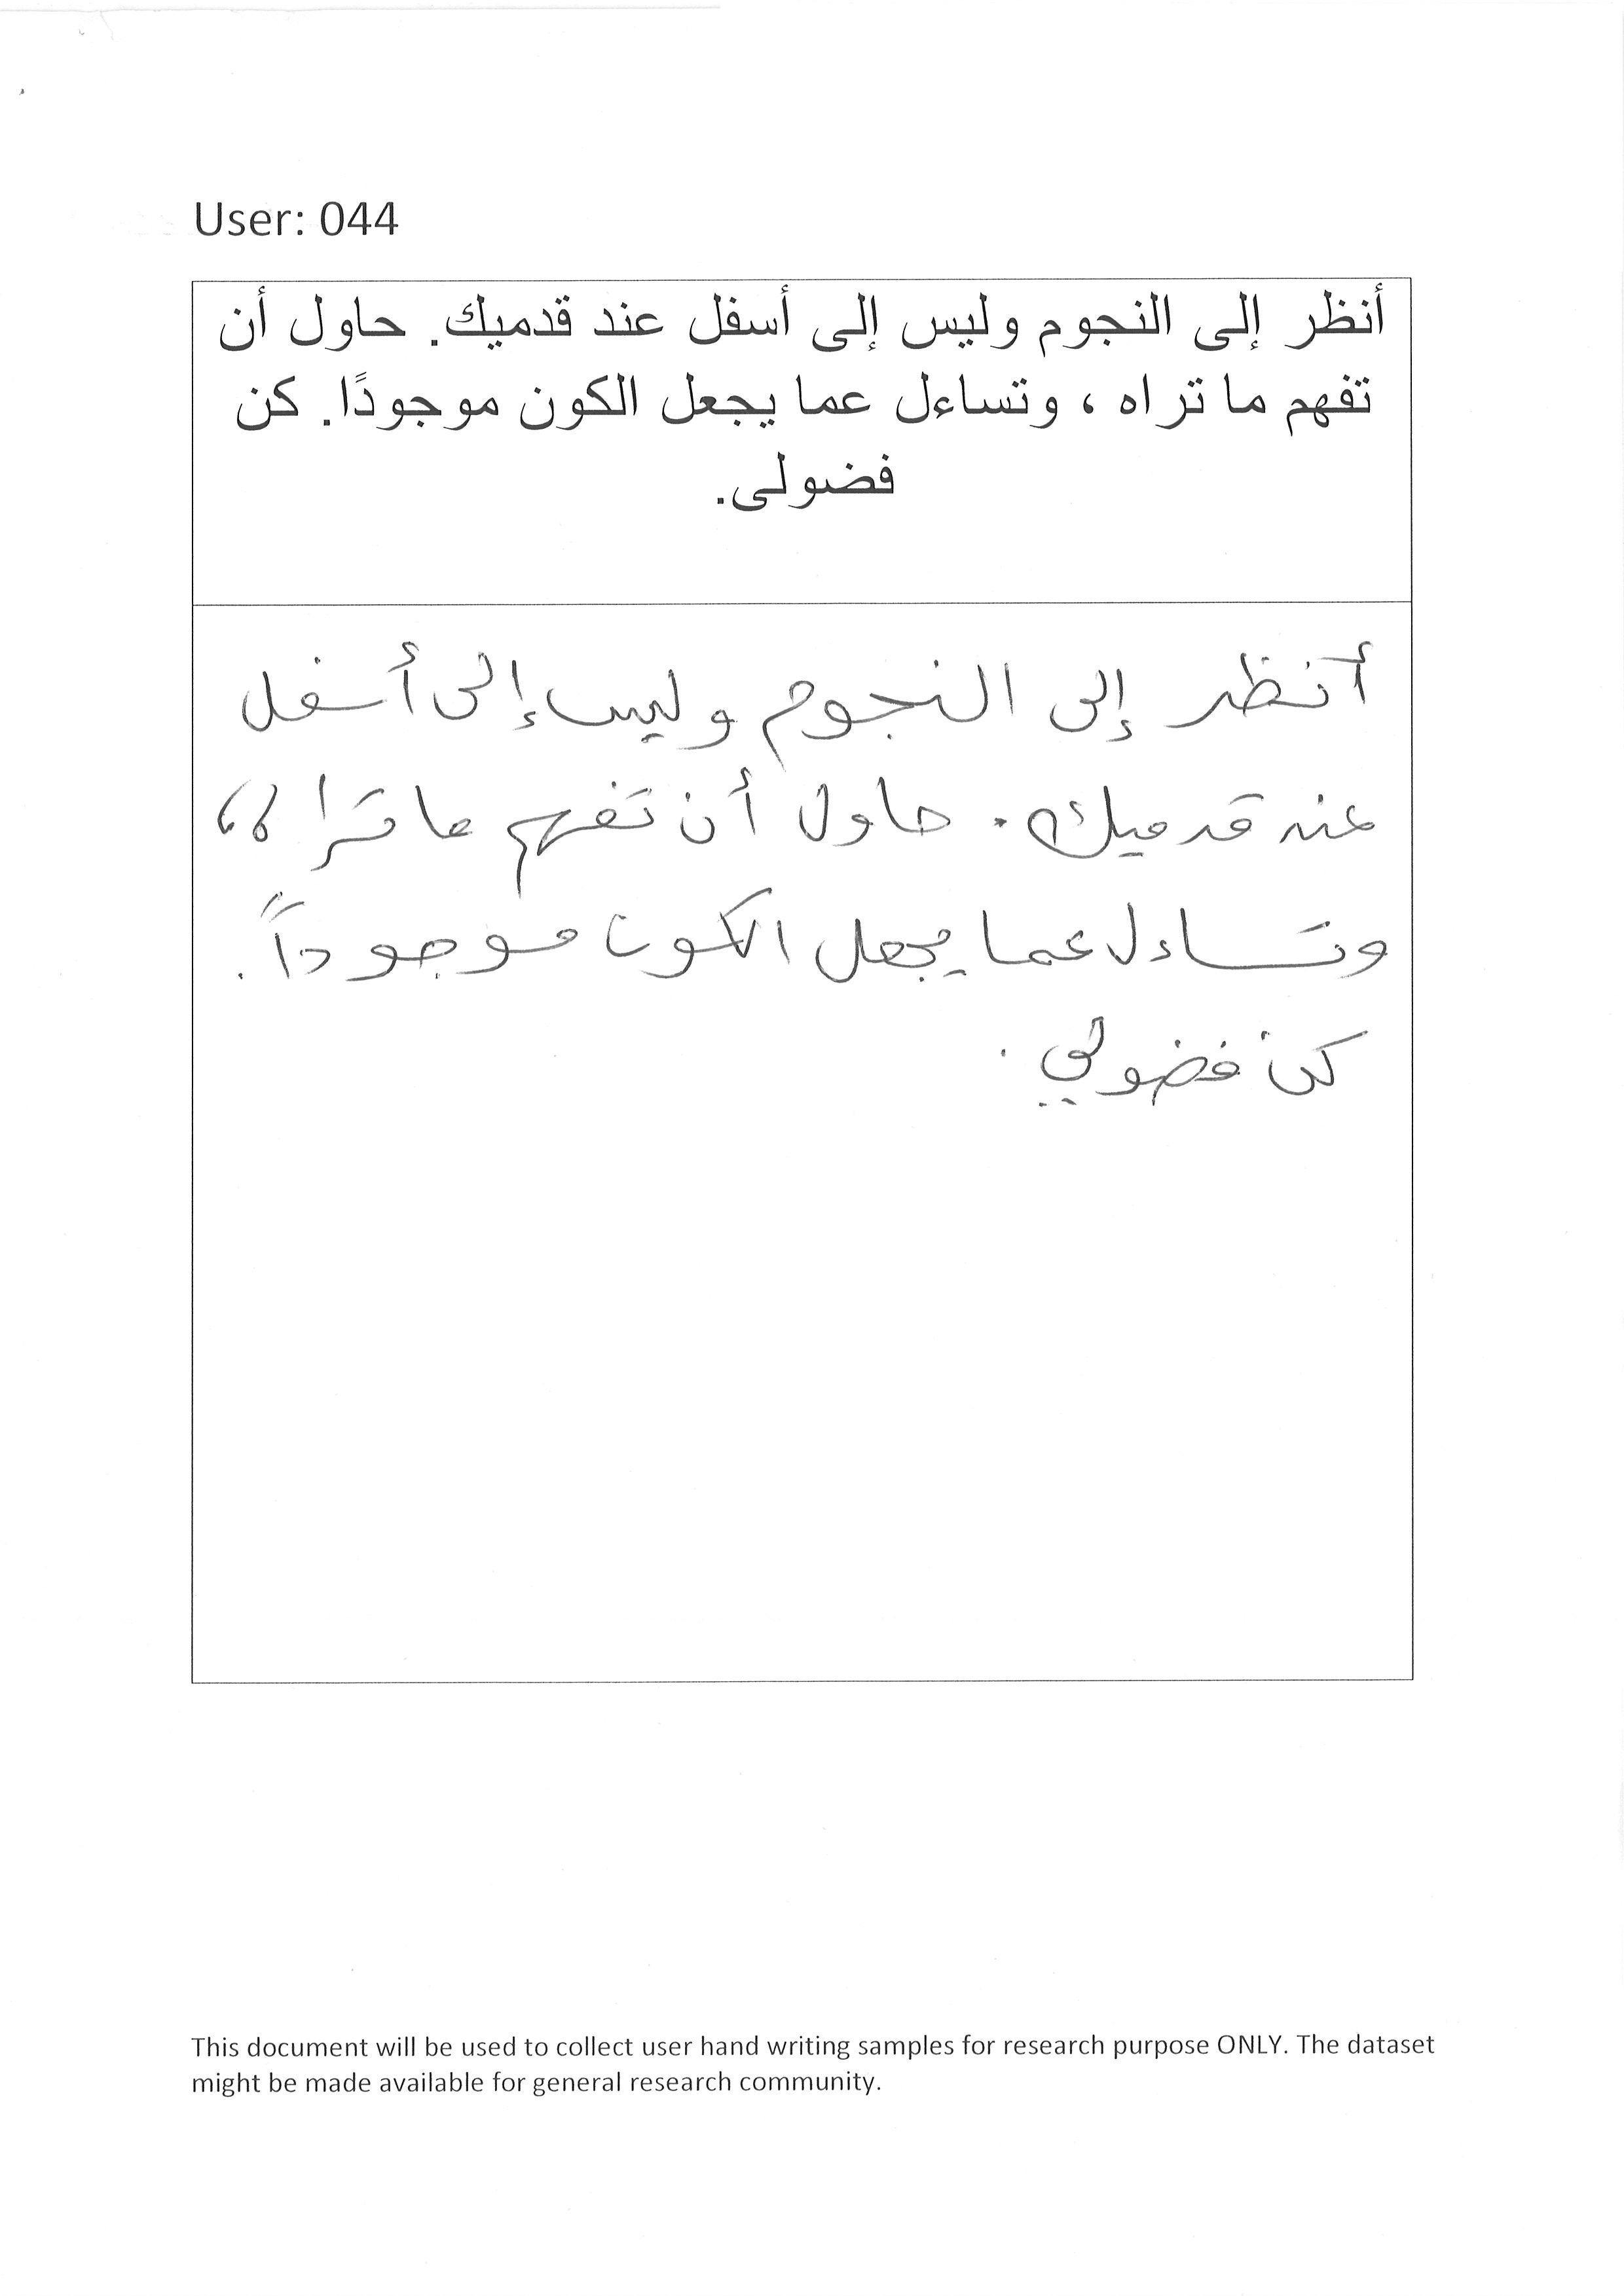 User: 044
أنظر إلى النجوم وليس إلى أسفل عند قدميك. حاول أن
تفهم ما تراه ، وتساءل عما يجعل الكون موجودًا. كن
فضولى.
أنظر إلى النجوم وليس إلى أسفل
عند قدميك. حاول أن تفهم ما تراه،
وتساءل عما يجعل الكون موجوداً.
كن فضولي.
This document will be used to collect user hand writing samples for research purpose ONLY. The dataset
might be made available for general research community.